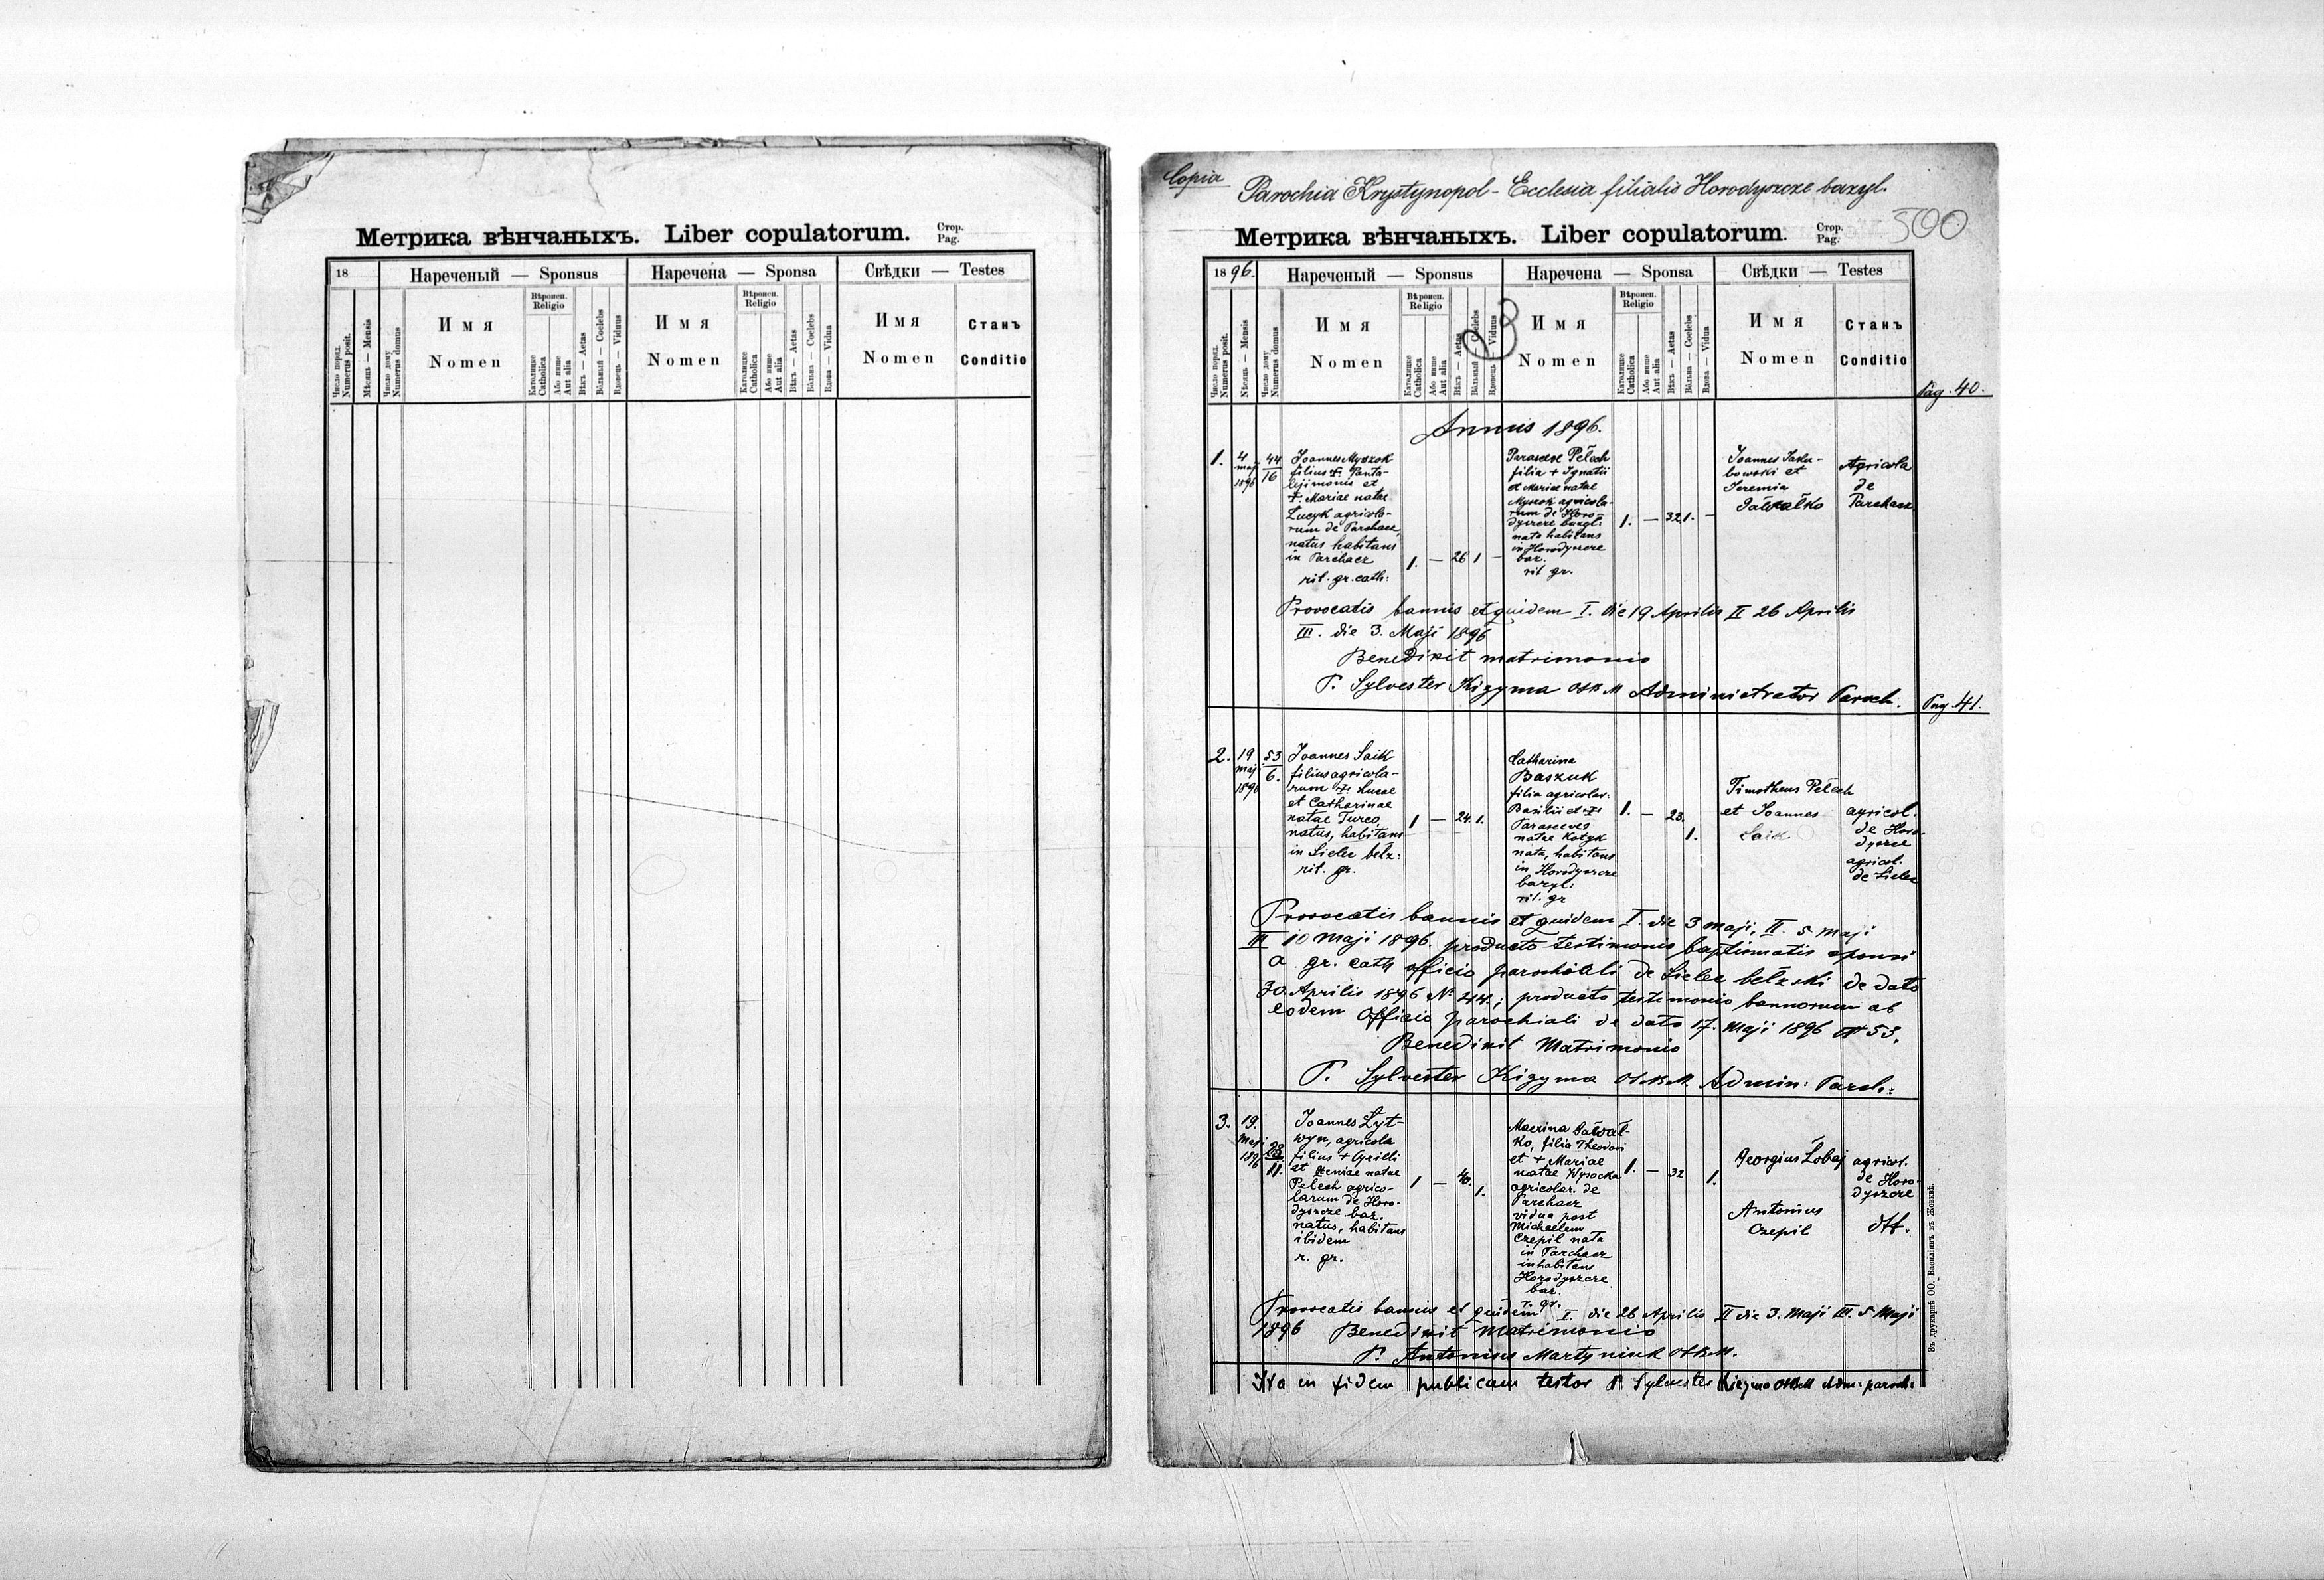 Метрика вѣнчаныхъ. Liber copulatorum. Стор. Pag.
18
Нареченый — Sponsus
Наречена — Sponsa
Свѣдки — Testes
Число поряд. Numerus posit.
Мѣсяць — Mensis
Число дому Numerus domus
Имя
Nomen
Вѣроисп. Religio
Католицке Catholica
Або инше Aut alia
Вѣкъ — Aetas
Вôльный — Coelebs
Вдовець — Viduus
Имя
Nomen
Вѣроисп. Religio
Католицке Catholica
Або инше Aut alia
Вѣкъ — Aetas
Вôльна — Coelebs
Вдова — Vidua
Имя
Nomen
Станъ
Conditio
Copia
Parochia Krystynopol - Ecclesia filialis Horodyszcze bazyl.
500
Метрика вѣнчаныхъ. Liber copulatorum. Стор. Pag.
1896.
Нареченый — Sponsus
Наречена — Sponsa
Свѣдки — Testes
Число поряд. Numerus posit.
Мѣсяць — Mensis
Число дому Numerus domus
Имя
Nomen
Вѣроисп. Religio
Католицке Catholica
Або инше Aut alia
Вѣкъ — Aetas
Вôльный — Coelebs
Вдовець — Viduus
Имя
Nomen
Вѣроисп. Religio
Католицке Catholica
Або инше Aut alia
Вѣкъ — Aetas
Вôльна — Coelebs
Вдова — Vidua
Имя
Nomen
Станъ
Conditio
Pag. 40.
Annus 1896.
1.
4
maji
1896
44
16
Joannes Myszok
filius + Panta-
lejimonis et
+ Mariae natae
Łucyk agricola-
rum de Parchacz,
natus habitans
in Parchacz
rit. gr. cath:
1. — 26 1 —
Parascev Pelech
filia + Ignatii
et Mariae natae
Myszok agricola-
rum de Horo-
dyszcze bazyl:
nata habitans
in Horodyszcze
baz.
rit gr.
1. — 32 1. —
Joannes Jaku-
bowski et
Jeremia
Pawałko
Agricola
de
Parchacz
Provocatis bannis et quidem I. die 19 Aprilis II 26 Aprilis
III. die 3. Maji 1896
Benedixit matrimonio
P. Sylvester Kizyma OSBM Administrator Paroch.
Pag. 41.
2.
19
maj
1896
53
6.
Joannes Saik
filius agricola-
rum + Lucae
et Catharinae
natae Turco,
natus, habitans
in Sielec bełz:
rit. gr.
1 — 24. 1.
Catharina
Baszuk
filia agricolar:
Basilii et +
Parasceves
natae Kotyk
nata, habitans
in Horodyszcze
bazyl:
rit. gr
1. — 23. 1.
Timotheus Pelech
et Joannes
Saik
agricol.
de Horo-
dyszcze
agricol.
de Sielec
Provocatis bannis et quidem I. die 3 maji, II. 5 maji
III 10 Maji 1896. producto testimonio baptismatis sponsi
a gr. cath officio parochiali de Sielec bełzski de dato
30. Aprilis 1896 № 44.; producto testimonio bannorum ab
eodem officio parochiali de dato 17. Maji 1896 № 53.
Benedixit Matrimonio
P. Sylvester Kizyma OSBM. Admin: Paroch:
3.
19.
Maji
1896
28
11.
Joannes Łyt-
wyn, agricola
filius + Cyrilli
et Xeniae natae
Pelech agrico-
larum de Horo-
dyszcze baz.
natus, habitans
ibidem
r. gr.
1 — 40. 1.
Macrina Pawał-
ko, filia Theodori
et + Mariae
natae Wysocka
agricolar. de
Parchacz
vidua post
Michaelem
Czepil nata
in Parchacz
inhabitans
Horodyszcze
baz.
r. gr.
1. — 32 1.
Georgius Łobaj
Antonius
Czepil
agricol.
de Horo-
dyszcze
dtt.
Provocatis bannis et quidem I. die 26 Aprilis II die 3. Maji III. 5 Maji
1896 Benedixit Matrimonio
P. Antonius Martyniuk OSBM.
Ita in fidem publicam testor P. Sylvester Kizyma OSBM Adm: paroch:
Зъ друкарнѣ ОО. Василіянъ въ Жовквѣ.